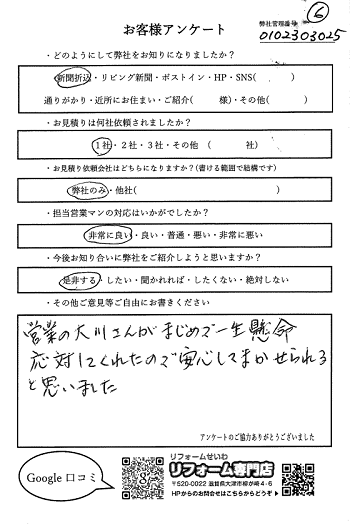 お客様アンケート
弊社管理番号
6
0102303025
・どのようにして弊社をお知りになりましたか？
新聞折込・リビング新聞・ポストイン・HP・SNS(　　　)
通りがかり・近所にお住まい・ご紹介(　　　様)・その他(　　　)
・お見積りは何社依頼されましたか？
1社・2社・3社・その他　(　　　社)
・お見積り依頼会社はどちらになりますか？(書ける範囲で結構です)
弊社のみ・他社(　　　)
・担当営業マンの対応はいかがでしたか？
非常に良い・良い・普通・悪い・非常に悪い
・今後お知り合いに弊社をご紹介しようと思いますか？
是非する・したい・聞かれれば・したくない・絶対しない
・その他ご意見等ご自由にお書きください
営業の大川さんがまじめで一生懸命
応対してくれたので安心してまかせられる
と思いました
アンケートのご協力ありがとうございました
Google 口コミ
リフォームせいわ
リフォーム専門店
〒520-0022 滋賀県大津市柳が崎4-6
HPからのお問合せはこちらからどうぞ